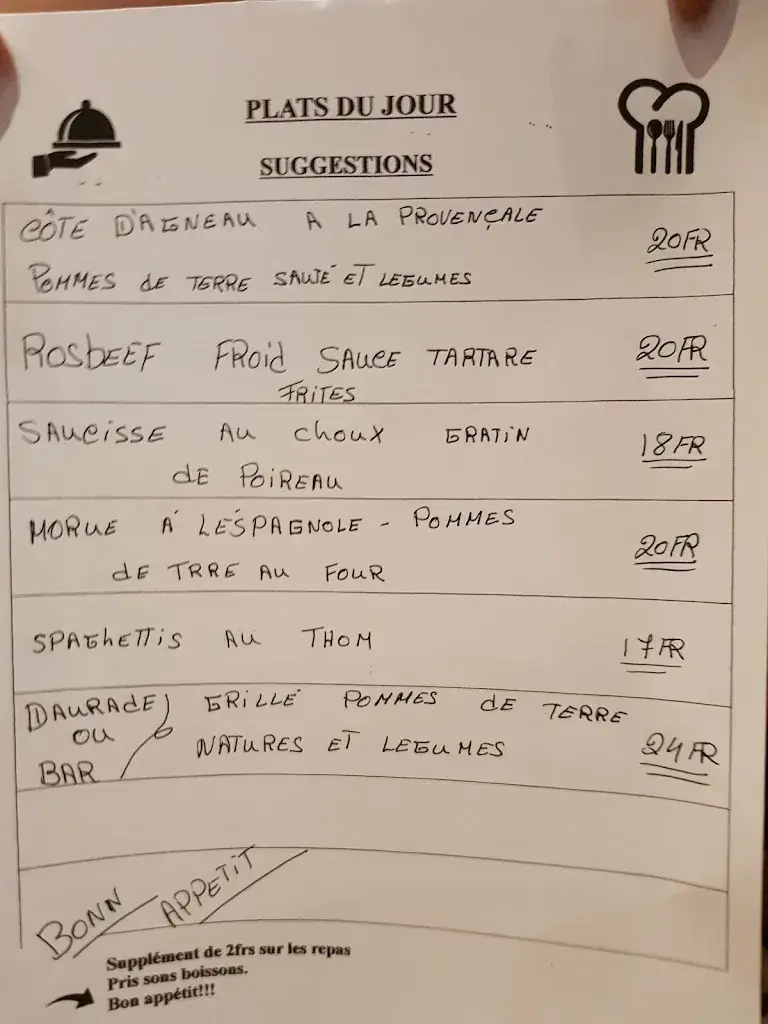 PLATS DU JOUR
SUGGESTIONS
CÔTE D'AGNEAU A LA PROVENÇALE
20FR
POMMES de TERRE SAUTÉ ET LEGUMES
ROSbEEF FROid SAUCE TARTARE
20FR
FRITES
SAUCISSE AU chOUX GRATiN
18FR
dE POiREAU
MORUE Á LÉSPAGNOLE - POMMES
20FR
dE TRRE AU FOUR
SPAGhETTiS AU THOM
17FR
DAURAdE GRiLLÉ POMMES dE TERRE
OU NATURES ET LEGUMES
24FR
BAR
BONN APPETiT
Supplément de 2frs sur les repas
Pris sons boissons.
Bon appétit!!!